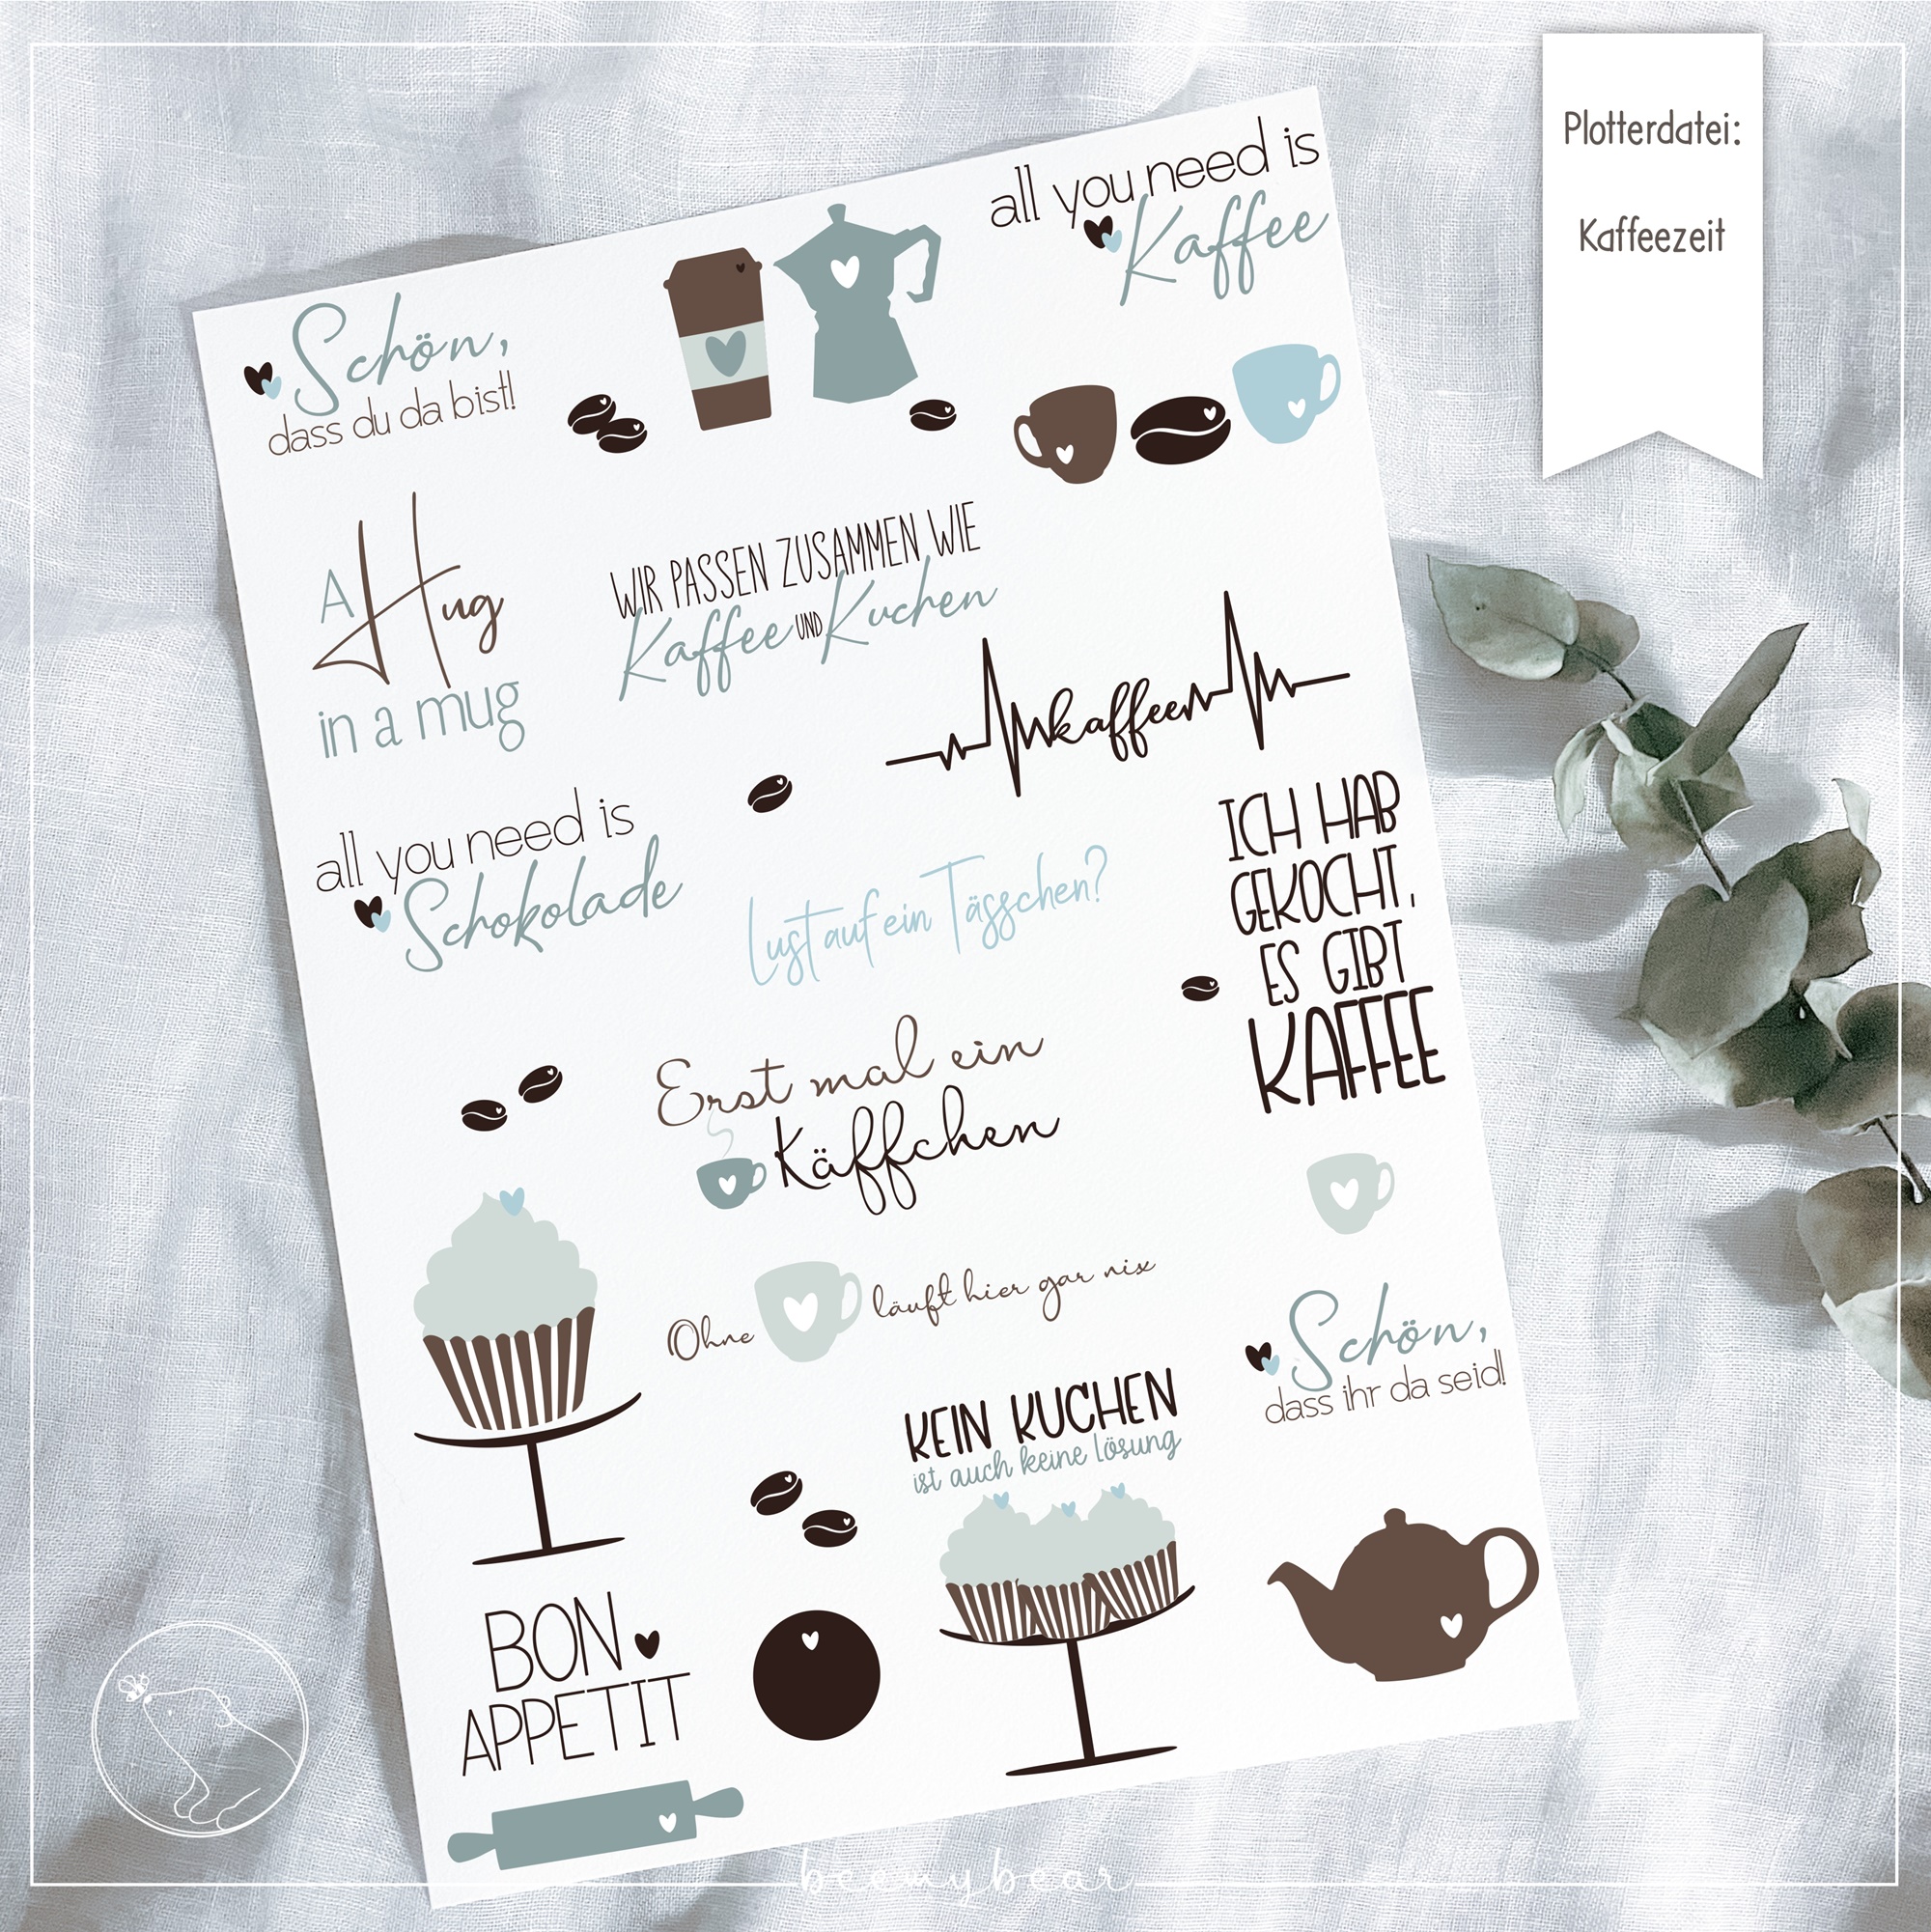 Plotterdatei:
Kaffeezeit
all you need is
Kaffee
Schön,
dass du da bist!
A Hug
in a mug
WIR PASSEN ZUSAMMEN WIE
Kaffee UND Kuchen
kaffee
all you need is
Schokolade
Lust auf ein Tässchen?
ICH HAB
GEKOCHT,
ES GIBT
KAFFEE
Erst mal ein
Käffchen
Ohne läuft hier gar nix
Schön,
dass ihr da seid!
KEIN KUCHEN
ist auch keine lösung
BON
APPETIT
beemybear